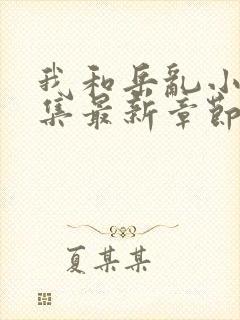 我和岳乱小
集最新章节
夏某某